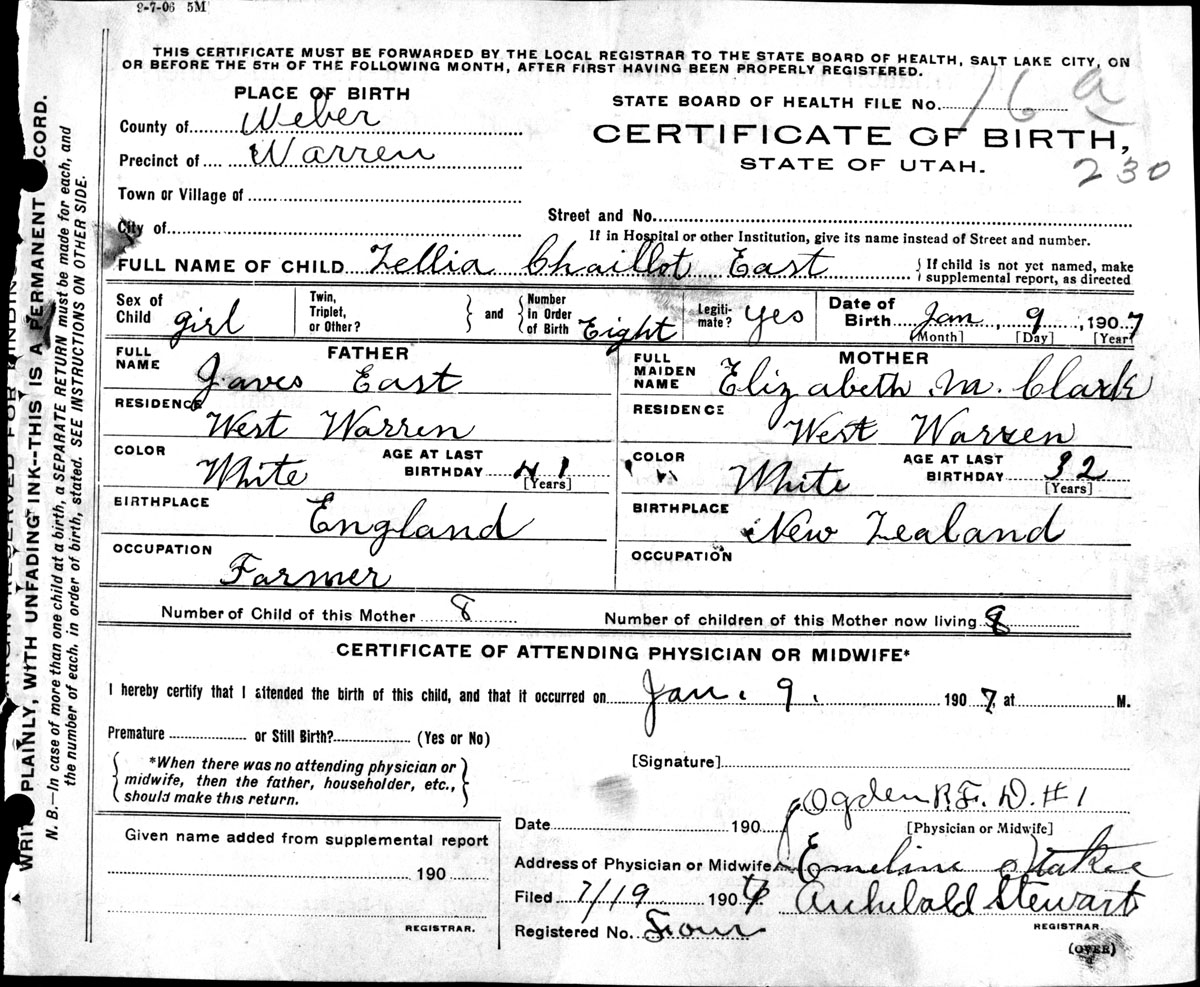 9-7-06 5M
THIS CERTIFICATE MUST BE FORWARDED BY THE LOCAL REGISTRAR TO THE STATE BOARD OF HEALTH, SALT LAKE CITY, ON
OR BEFORE THE 5TH OF THE FOLLOWING MONTH, AFTER FIRST HAVING BEEN PROPERLY REGISTERED.
PLACE OF BIRTH
County of Weber
Precinct of Warren
Town or Village of
City of
STATE BOARD OF HEALTH FILE No. 16 a
CERTIFICATE OF BIRTH,
STATE OF UTAH.
230
Street and No.
If in Hospital or other Institution, give its name instead of Street and number.
FULL NAME OF CHILD Zellia Chaillot East
If child is not yet named, make
supplemental report, as directed
Sex of Child girl
Twin, Triplet, or Other?
and
Number in Order of Birth Eight
Legiti-mate? yes
Date of Birth Jan, 9, 1907
[Month] [Day] [Year]
FATHER
FULL NAME James East
RESIDENCE West Warren
COLOR White
AGE AT LAST BIRTHDAY 41
[Years]
BIRTHPLACE England
OCCUPATION Farmer
MOTHER
FULL MAIDEN NAME Elizabeth M. Clark
RESIDENCE West Warren
COLOR White
AGE AT LAST BIRTHDAY 32
[Years]
BIRTHPLACE New Zealand
OCCUPATION
Number of Child of this Mother 8
Number of children of this Mother now living 8
CERTIFICATE OF ATTENDING PHYSICIAN OR MIDWIFE*
I hereby certify that I attended the birth of this child, and that it occurred on Jan. 9. 1907, at M.
Premature or Still Birth? (Yes or No)
*When there was no attending physician or
midwife, then the father, householder, etc.,
should make this return.
[Signature]
Given name added from supplemental report
190
REGISTRAR.
Ogden R.F.D. #1
Date 190
[Physician or Midwife]
Address of Physician or Midwife Emeline
Filed 1/19 1907
Archibald Stewart
REGISTRAR.
Registered No. Four
(OVER)
WRITE PLAINLY, WITH UNFADING INK--THIS IS A PERMANENT RECORD.
N. B.—In case of more than one child at a birth, a SEPARATE RETURN must be made for each, and
the number of each, in order of birth, stated. SEE INSTRUCTIONS ON OTHER SIDE.